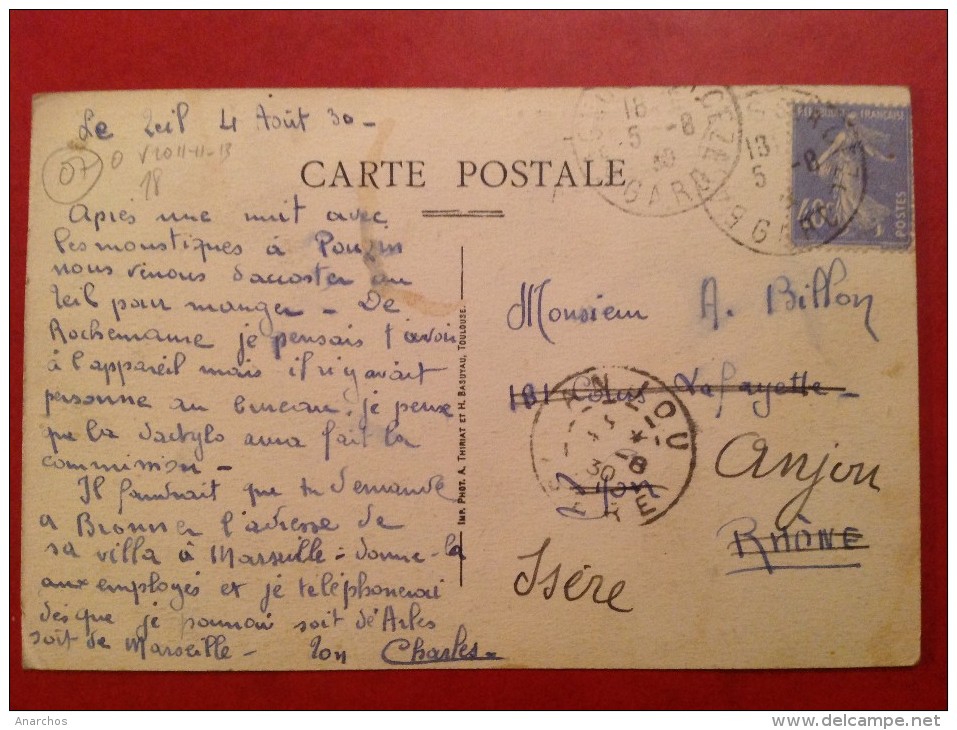 Le Teil 4 Août 30 -
07
0
V2011-11-13
18
CARTE POSTALE
Après une nuit avec
les moustiques à Pouzin
nous venons d'accoster au
Teil pour manger - De
Rochemaure je pensais t'avoir
à l'appareil mais il n'y avait
personne au bureau. je pense
que la dactylo aura fait la
commission -
Il faudrait que tu demande
a Bronner l'adresse de
sa villa à Marseille - donne-la
aux employés et je téléphonerai
dès que je pourrai soit d'Arles
soit de Marseille - Ton Charles -
IMP. PHOT. A. THIRIAT ET H. BASUYAU, TOULOUSE.
16
5 -8
30
GARD
13
5 -8
GARD
FRANÇAISE
POSTES
40c
Monsieur A. Billon
181 Cours Lafayette
Lyon
Anjou
RHÔNE
Isère
ANJOU
-8
30
ISERE
Anarchos
www.delcampe.net